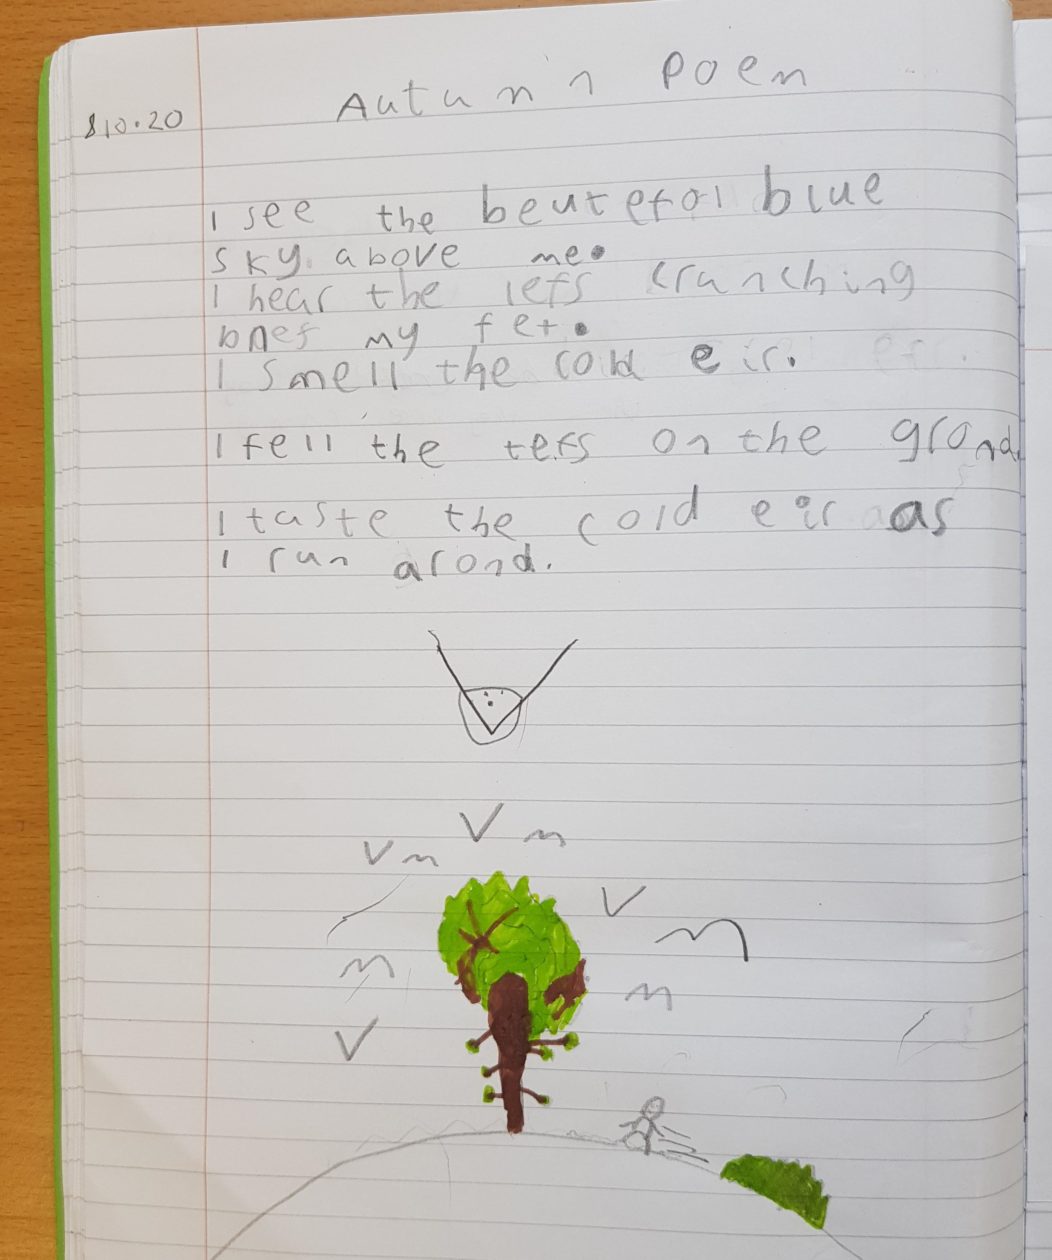 Autum'n Poem
8 10.20
I see the beutefol blue
sky above me.
I hear the lefs crunching
bnef my fet.
I smell the cold eir.
I fell the lefs on the grond
I taste the cold eir as
I run arond.